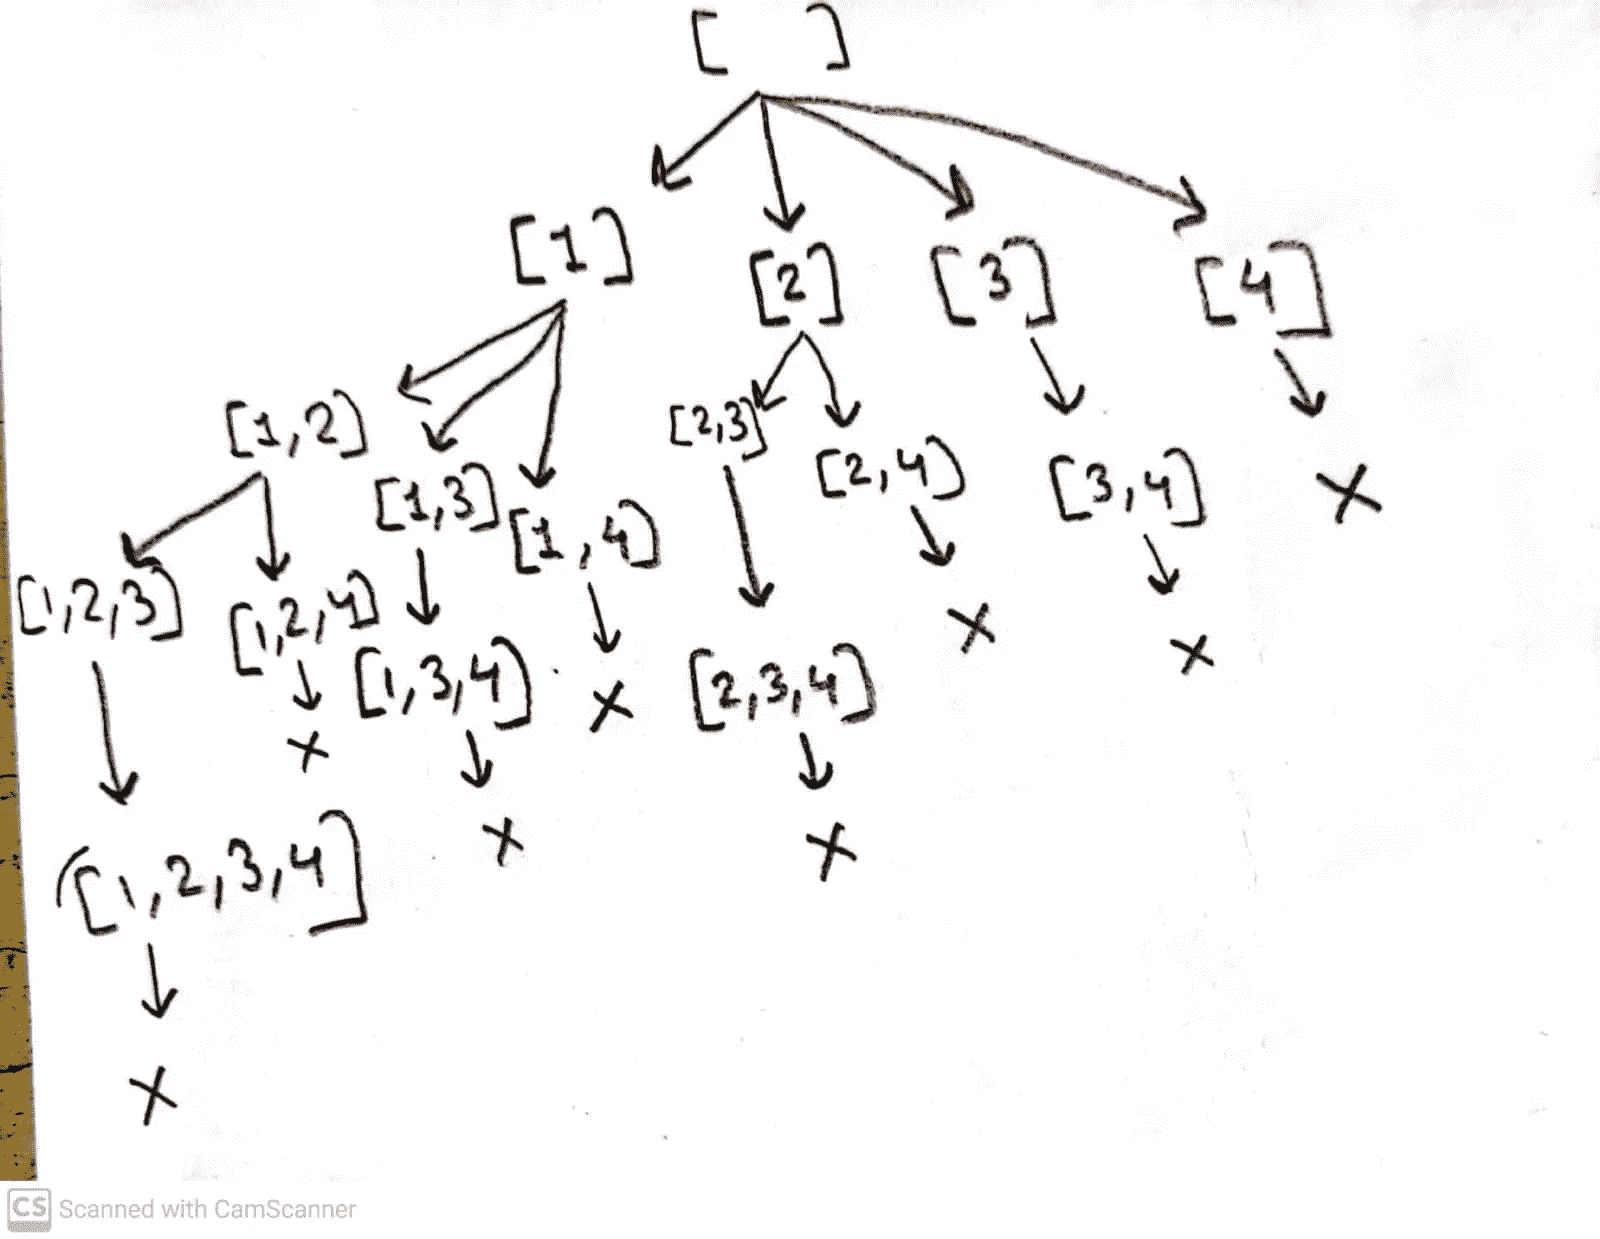 [ ]
[1] [2] [3] [4]
[1,2] [1,3] [1,4] [2,3] [2,4] [3,4] X
[1,2,3] [1,2,4] [1,3,4] X [2,3,4] X X
X X X
[1,2,3,4]
X
CS Scanned with CamScanner